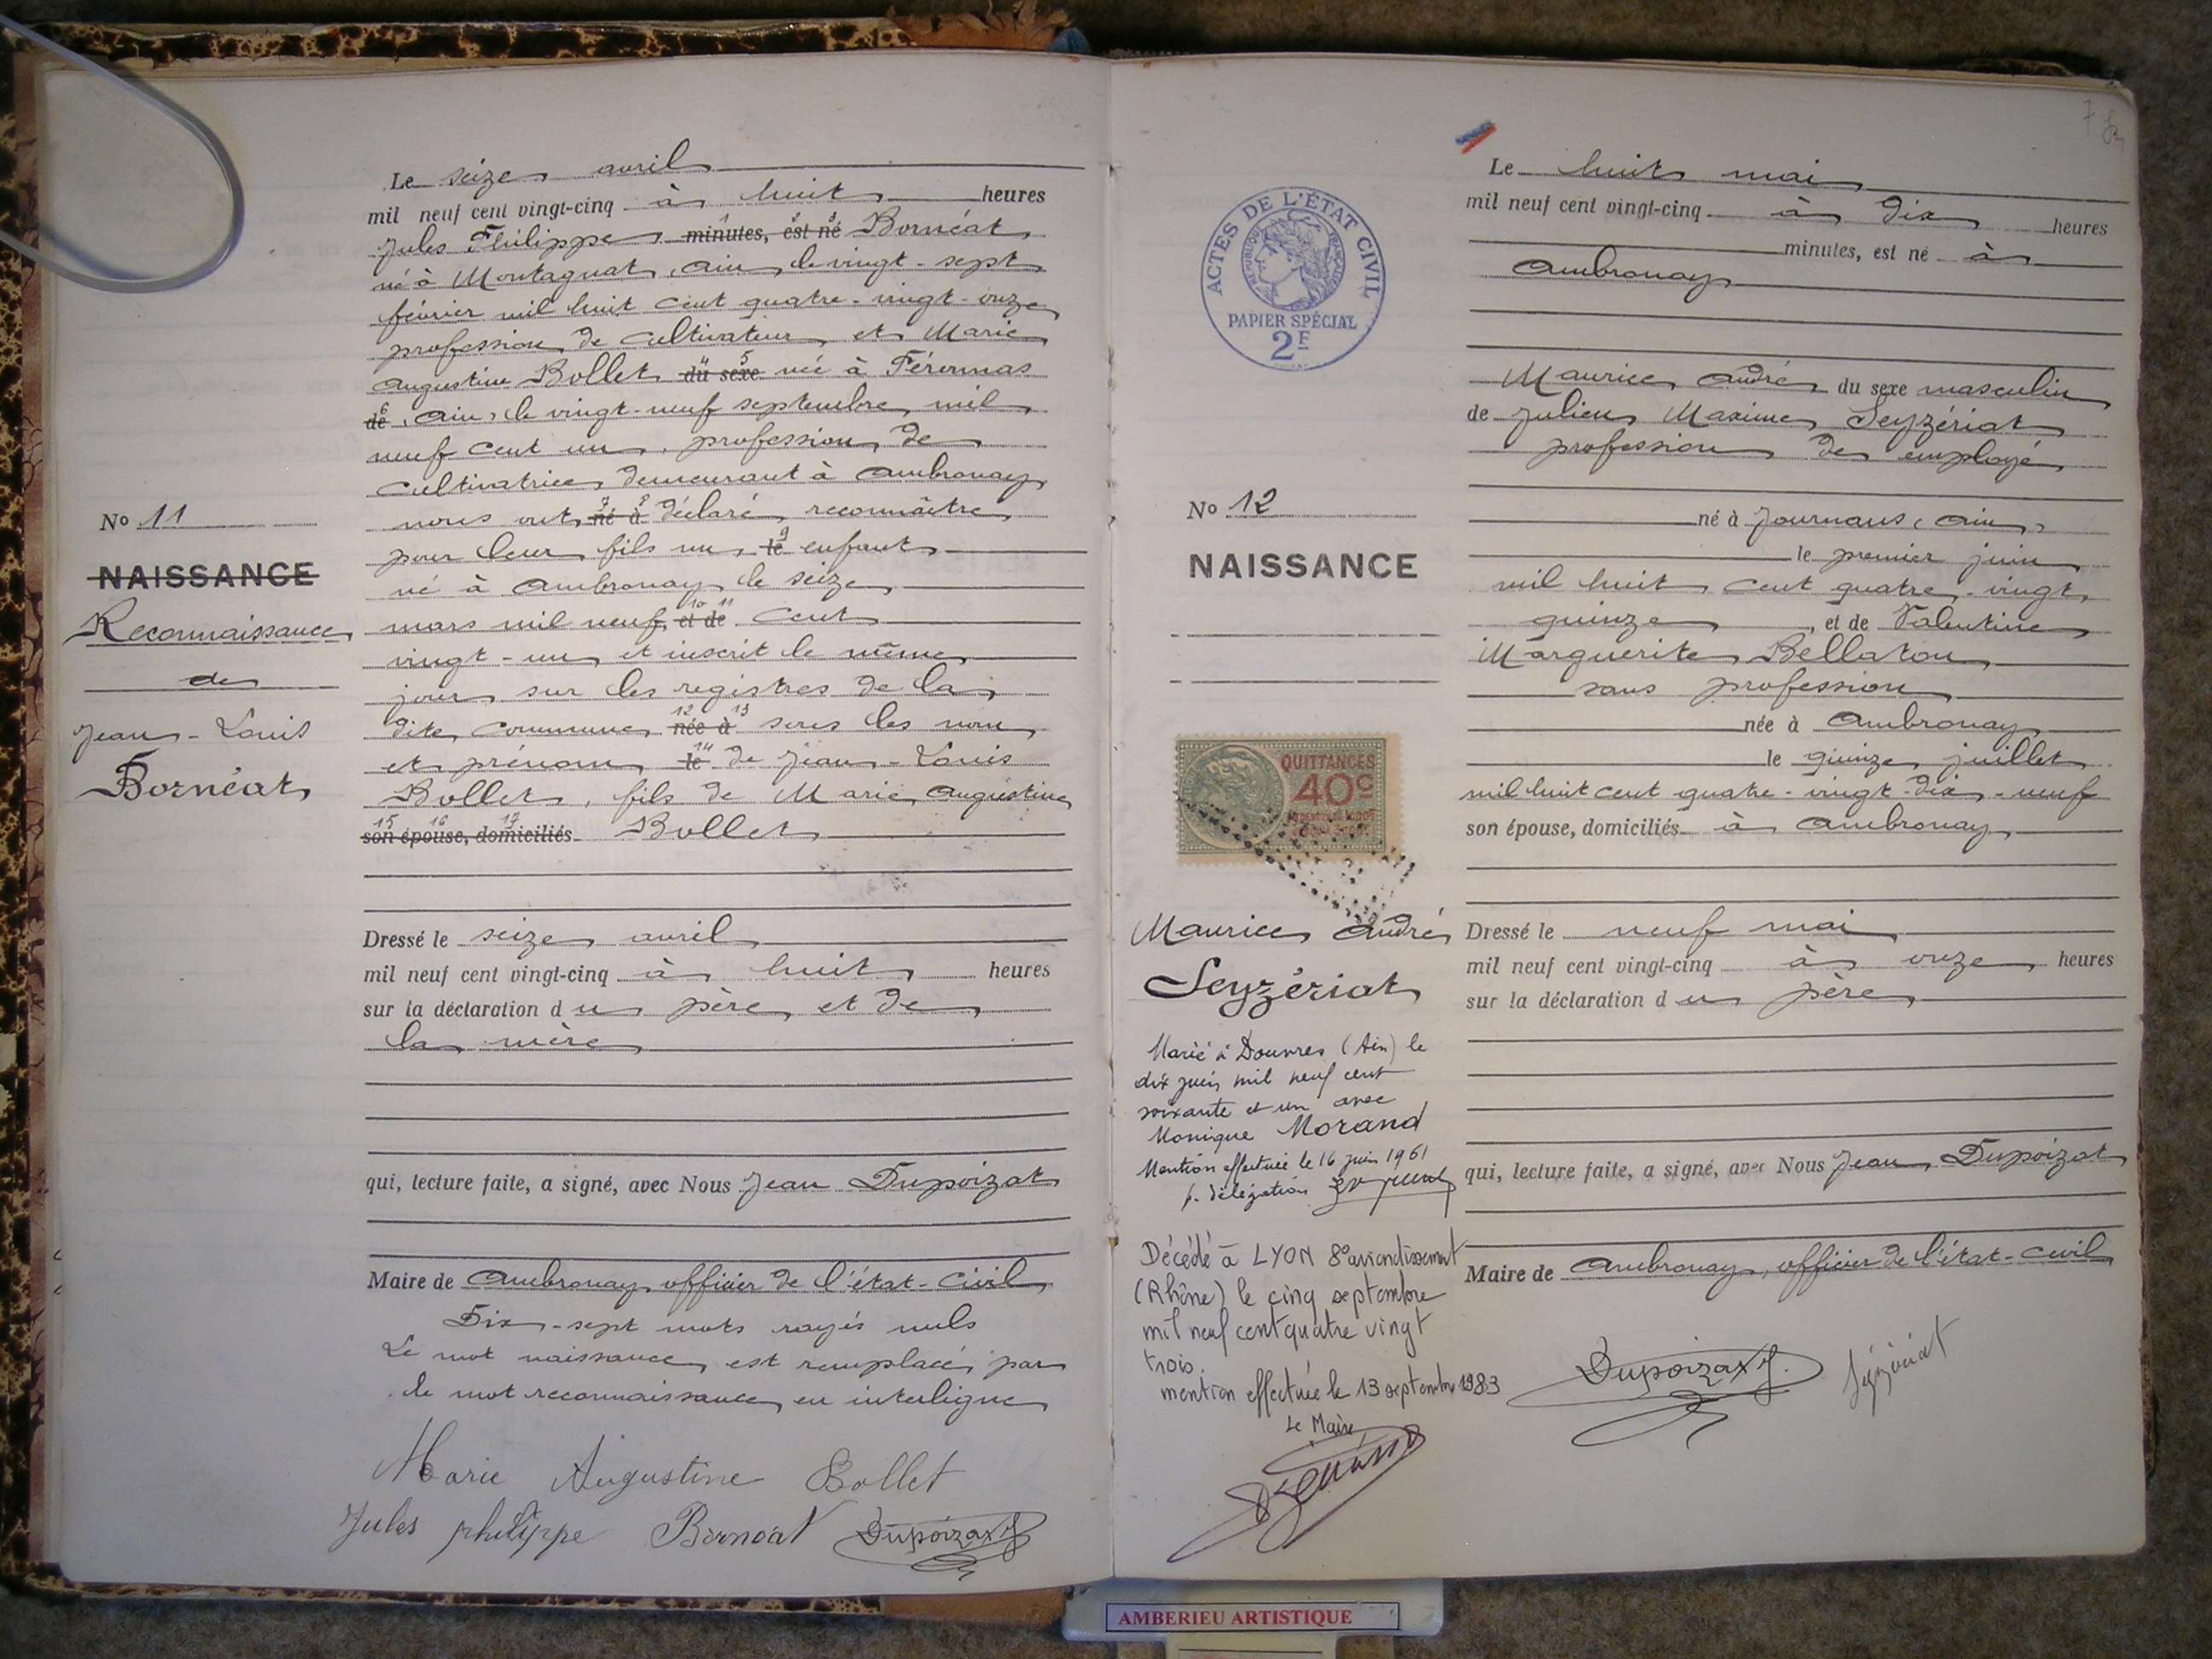 Le seize avril
mil neuf cent vingt-cinq à huit heures
Jules Philippe minutes, est né Bornéat
né à Montagnat, ain, le vingt-sept
février mil huit cent quatre-vingt-onze
profession de cultivateur et Marie
augustine Bollet du sexe née à
de, ain, le vingt-neuf septembre mil
neuf cent un, profession de
cultivatrice demeurant à ambronay
nous ont né à déclaré reconnaître
pour leur fils un le enfant
né à ambronay le seize
mars mil neuf, et de cent
vingt-un et inscrit le même
jour sur les registres de la
dite commune née à sous les nom
et prénom le de Jean-Louis
Bollet, fils de Marie augustine
son épouse, domiciliés Bollet
No 11
NAISSANCE
Reconnaissance
de
Jean-Louis
Bornéat
Dressé le seize avril
mil neuf cent vingt-cinq à huit heures
sur la déclaration du père et de
la mère
qui, lecture faite, a signé, avec Nous Jean Dupoizat
Maire de ambronay officier de l'état-civil
Dix-sept mots rayés nuls
Le mot naissance est remplacé par
le mot reconnaissance en interligne
Marie Augustine Bollet
Jules philippe Bornéat Dupoizat J
ACTES DE L'ÉTAT CIVIL
RÉPUBLIQUE FRANÇAISE
PAPIER SPÉCIAL
2F
No 12
NAISSANCE
QUITTANCES
40c
Maurice andré
Seyzériat
Marié à Douvres (Ain) le
dix juin mil neuf cent
soixante et un avec
Monique Morand
Mention effectuée le 16 juin 1961
p. délégation
Décédé à LYON 8° arrondissement
(Rhône) le cinq septembre
mil neuf cent quatre vingt
trois.
mention effectuée le 13 septembre 1983
Le Maire,
Le huit mai
mil neuf cent vingt-cinq à dix heures
minutes, est né à
ambronay
Maurice andré du sexe masculin
de Julien Maxime Seyzériat
profession de employé
né à Journans, ain,
le premier juin
mil huit cent quatre-vingt
quinze, et de Valentine
Marguerite Bellaton
sans profession
née à ambronay
le quinze juillet
mil huit cent quatre-vingt-dix-neuf
son épouse, domiciliés à ambronay
Dressé le neuf mai
mil neuf cent vingt-cinq à onze heures
sur la déclaration du père
qui, lecture faite, a signé, avec Nous Jean Dupoizat
Maire de ambronay, officier de l'état-civil
Dupoizat J. Seyzériat
AMBERIEU ARTISTIQUE